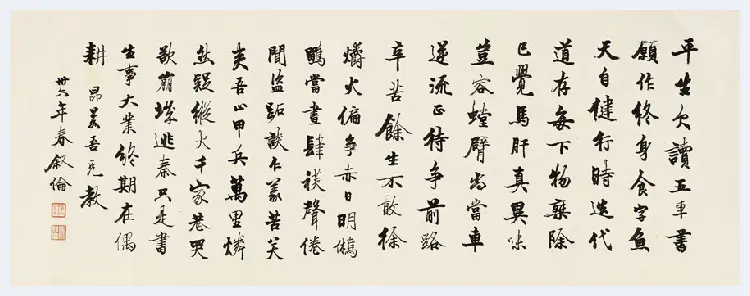 平生欠讀五車書
願作終身食字魚
天自健行時迭代
道存每下物乘除
已覺馬肝真異味
豈容螳臂尚當車
逆流正待爭前路
辛苦餘生不敢徐
爝火偏爭赤日明鵂
鶹當晝肆祅聲倦
聞盜跖談仁義苦笑
夷吾止甲兵萬里燐
然疑縱火千家巷哭
欲崩城逃秦只是書
生事大業終期在偶
耕 昂若吾兄教
卅六年春叙倫